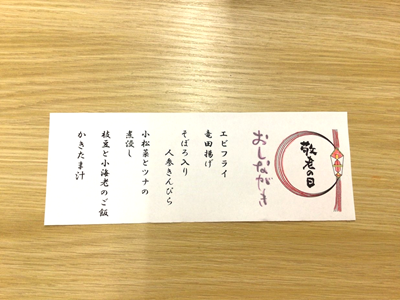 敬老の日
おしながき
エビフライ
竜田揚げ
そぼろ入り
人参きんぴら
小松菜とツナの
煮浸し
枝豆と小海老のご飯
かきたま汁